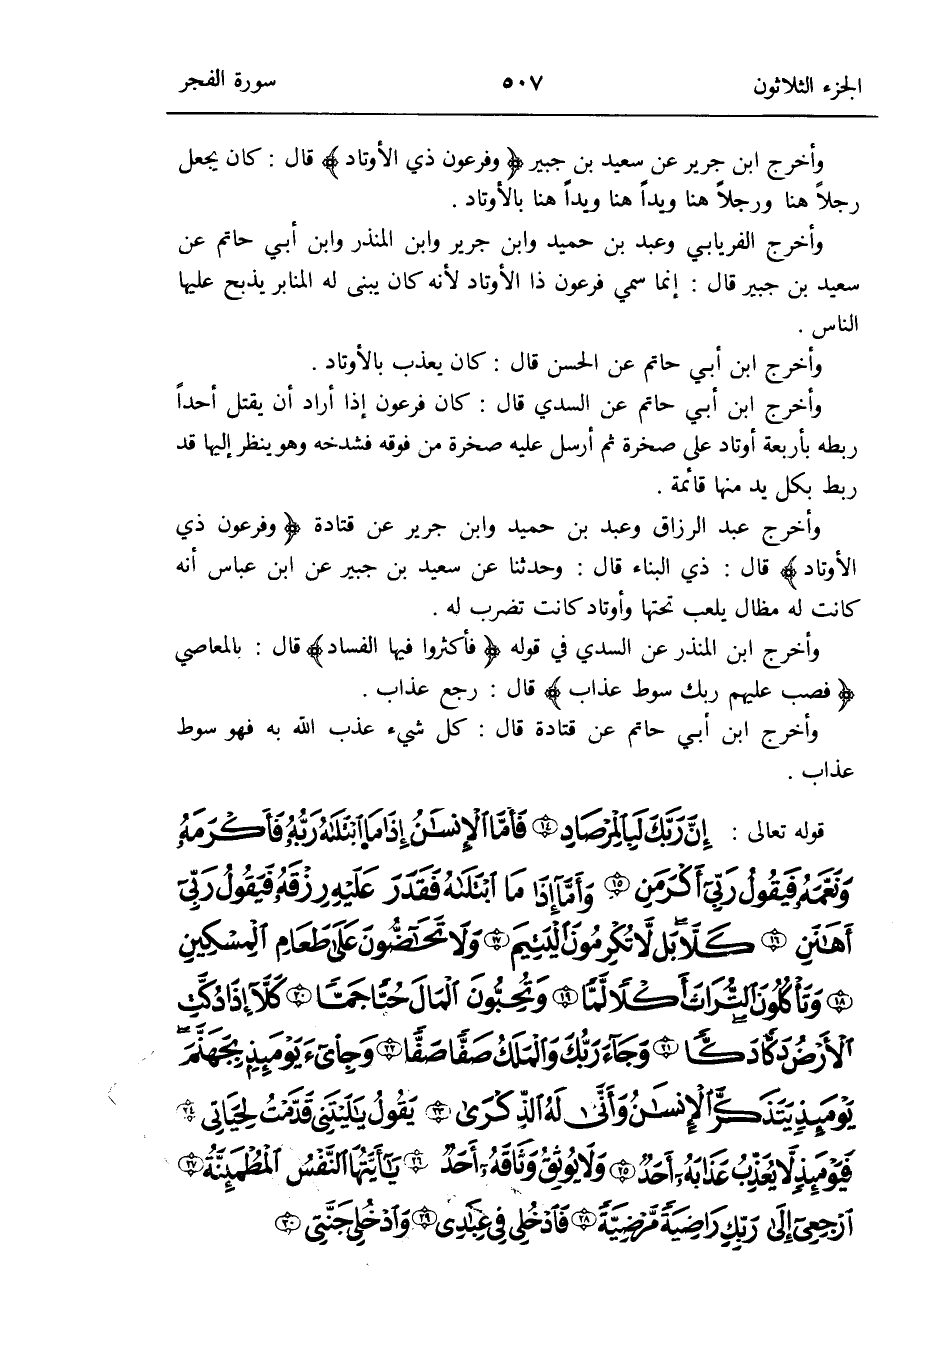 الجزء الثلاثون ٥٠٧ سورة الفجر
وأخرج ابن جرير عن سعيد بن جبير ﴿ وفرعون ذي الأوتاد ﴾ قال : كان يجعل
رجلاً هنا ورجلاً هنا ويداً هنا ويداً هنا بالأوتاد .
وأخرج الفريابي وعبد بن حميد وابن جرير وابن المنذر وابن أبي حاتم عن
سعيد بن جبير قال : إنما سمي فرعون ذا الأوتاد لأنه كان يبنى له المنابر يذبح عليها
الناس .
وأخرج ابن أبي حاتم عن الحسن قال : كان يعذب بالأوتاد .
وأخرج ابن أبي حاتم عن السدي قال : كان فرعون إذا أراد أن يقتل أحداً
ربطه بأربعة أوتاد على صخرة ثم أرسل عليه صخرة من فوقه فشدخه وهو ينظر إليها قد
ربط بكل يد منها قائمة .
وأخرج عبد الرزاق وعبد بن حميد وابن جرير عن قتادة ﴿ وفرعون ذي
الأوتاد ﴾ قال : ذي البناء قال : وحدثنا عن سعيد بن جبير عن ابن عباس أنه
كانت له مظال يلعب تحتها وأوتاد كانت تضرب له .
وأخرج ابن المنذر عن السدي في قوله ﴿ فأكثروا فيها الفساد ﴾ قال : بالمعاصي
﴿ فصب عليهم ربك سوط عذاب ﴾ قال : رجع عذاب .
وأخرج ابن أبي حاتم عن قتادة قال : كل شيء عذب الله به فهو سوط
عذاب .
قوله تعالى : إِنَّ رَبَّكَ لَبِالْمِرْصَادِ ١٤ فَأَمَّا الْإِنسَٰنُ إِذَا مَا ابْتَلَىٰهُ رَبُّهُۥ فَأَكْرَمَهُۥ
وَنَعَّمَهُۥ فَيَقُولُ رَبِّىٓ أَكْرَمَنِ ١٥ وَأَمَّآ إِذَا مَا ابْتَلَىٰهُ فَقَدَرَ عَلَيْهِ رِزْقَهُۥ فَيَقُولُ رَبِّىٓ
أَهَٰنَنِ ١٦ كَلَّا ۖ بَل لَّا تُكْرِمُونَ الْيَتِيمَ ١٧ وَلَا تَحَٰٓضُّونَ عَلَىٰ طَعَامِ الْمِسْكِينِ
١٨ وَتَأْكُلُونَ التُّرَاثَ أَكْلًا لَّمًّا ١٩ وَتُحِبُّونَ الْمَالَ حُبًّا جَمًّا ٢٠ كَلَّآ إِذَا دُكَّتِ
الْأَرْضُ دَكًّا دَكًّا ٢١ وَجَآءَ رَبُّكَ وَالْمَلَكُ صَفًّا صَفًّا ٢٢ وَجِاْىٓءَ يَوْمَئِذٍۭ بِجَهَنَّمَ ۚ
يَوْمَئِذٍ يَتَذَكَّرُ الْإِنسَٰنُ وَأَنَّىٰ لَهُ الذِّكْرَىٰ ٢٣ يَقُولُ يَٰلَيْتَنِى قَدَّمْتُ لِحَيَاتِى ٢٤
فَيَوْمَئِذٍ لَّا يُعَذِّبُ عَذَابَهُۥٓ أَحَدٌ ٢٥ وَلَا يُوثِقُ وَثَاقَهُۥٓ أَحَدٌ ٢٦ يَٰٓأَيَّتُهَا النَّفْسُ الْمُطْمَئِنَّةُ ٢٧
ارْجِعِىٓ إِلَىٰ رَبِّكِ رَاضِيَةً مَّرْضِيَّةً ٢٨ فَادْخُلِى فِى عِبَٰدِى ٢٩ وَادْخُلِى جَنَّتِى ٣٠